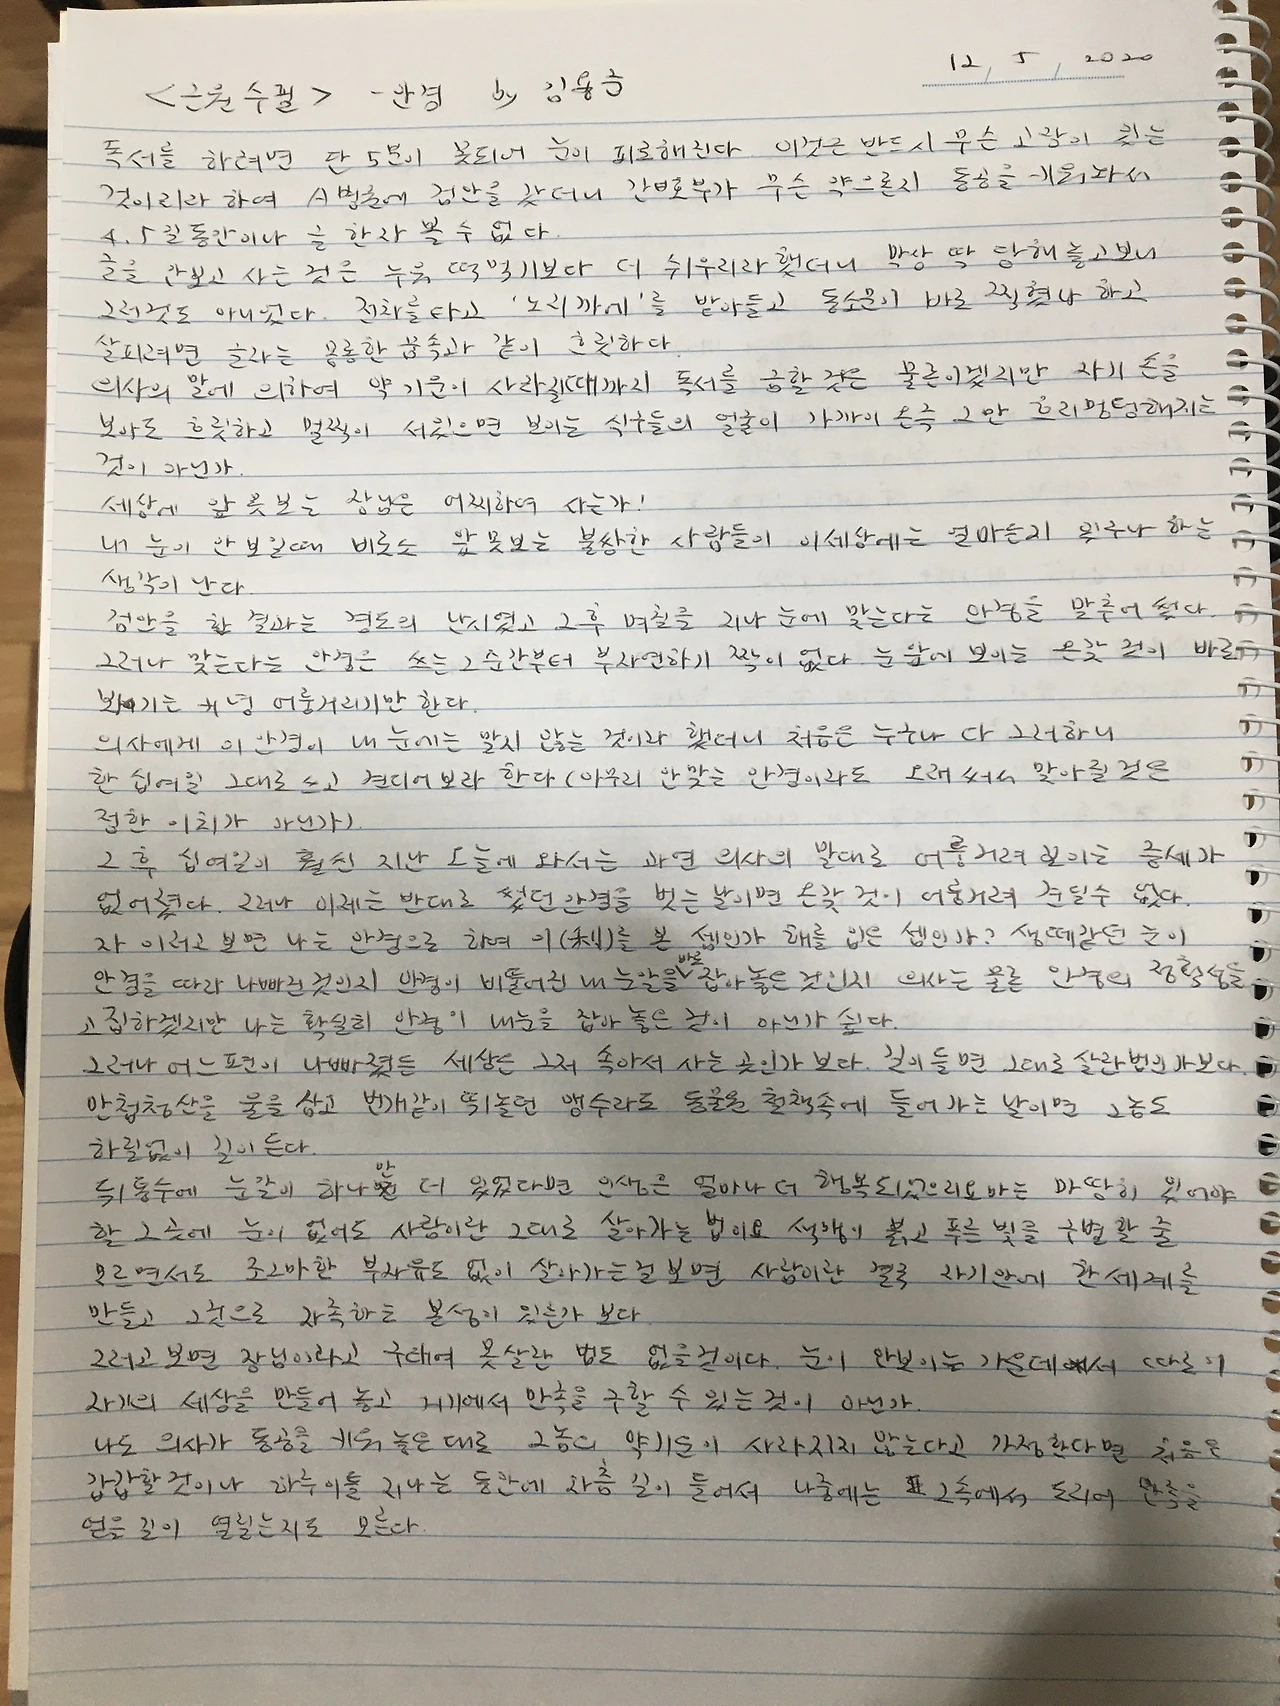 12 / 5 / 2020
<근원수필> - 안경 by 김용준
독서를 하려면 단 5분이 못되어 눈이 피로해진다. 이것은 반드시 무슨 고장이 있는
것이리라 하여 A병원에 검안을 갔더니 간호부가 무슨 약으론지 동공을 키워놔서
4.5일 동안이나 글 한자 볼 수 없다.
글을 안보고 사는 것은 누워 떡먹기보다 더 쉬우리라 했더니 막상 딱 당해 놓고보니
그런것도 아니었다. 전차를 타고 '노리까에'를 받아들고 동소문이 바로 찍혔나 하고
살피려면 글자는 몽롱한 꿈속과 같이 흐릿하다.
의사의 말에 의하여 약 기운이 사라질때까지 독서를 금할 것은 물론이겠지만 자기 손을
보아도 흐릿하고 멀찍이 서있으면 보이는 식구들의 얼굴이 가까이 온즉 그만 흐리멍텅해지는
것이 아닌가.
세상에 앞 못보는 장님은 어찌하여 사는가!
내 눈이 안 보일때 비로소 앞 못보는 불쌍한 사람들이 이세상에는 얼마든지 있구나 하는
생각이 난다.
검안을 한 결과는 경도의 난시였고 그후 며칠을 지나 눈에 맞는다는 안경을 맞추어 썼다.
그러나 맞는다는 안경은 쓰는 그 순간부터 부자연하기 짝이 없다 눈앞에 보이는 온갖 것이 바로
보이기는 커녕 어룽거리기만 한다.
의사에게 이 안경이 내 눈에는 맞지 않는 것이라 했더니 처음은 누구나 다 그러하니
한 십여일 그대로 쓰고 견디어보라 한다 (아무리 안맞는 안경이라도 오래 써서 맞아질 것은
정한 이치가 아닌가).
그 후 십여일이 훨씬 지난 오늘에 와서는 과연 의사의 말대로 어룽거려 보이는 증세가
없어졌다. 그러나 이제는 반대로 썼던 안경을 벗는 날이면 온갖 것이 어룽거려 견딜수 없다.
자 이러고 보면 나는 안경으로 하여 이(利)를 본 셈인가 해를 입은 셈인가? 생떼같던 눈이
안경을 따라 나빠진것인지 안경이 비뚤어진 내 눈알을 바로 잡아놓은 것인지 의사는 물론 안경의 정확성을
고집하겠지만 나는 확실히 안경이 내눈을 잡아 놓은 것이 아닌가 싶다.
그러나 어느편이 나빠졌든 세상은 그저 속아서 사는 곳인가 보다. 길이 들면 그대로 살란법인가보다.
만첩청산을 물을 삼고 번개같이 뛰놀던 맹수라도 동물원 철책속에 들어가는 날이면 그놈도
하릴없이 길이 든다.
뒤통수에 눈깔이 하나만 더 있었다면 인생은 얼마나 더 행복되었으리요마는 마땅히 있어야
할 그곳에 눈이 없어도 사람이란 그대로 살아가는 법이요 색맹이 붉고 푸른 빛을 구별할 줄
모르면서도 조그마한 부자유도 없이 살아가는걸 보면 사람이란 결국 자기안에 한 세계를
만들고 그것으로 자족하는 본성이 있는가 보다
그러고 보면 장님이라고 구태여 못살란 법도 없을것이다. 눈이 안보이는 가운데서 따로이
자기의 세상을 만들어 놓고 거기에서 만족을 구할 수 있는 것이 아닌가.
나도 의사가 동공을 키워 놓은 대로 그놈의 약기운이 사라지지 않는다고 가정한다면 처음은
갑갑할것이나 하루이틀 지나는 동안에 차츰 길이 들어서 나중에는 그속에서 도리어 만족을
얻을 길이 열릴는지도 모른다.